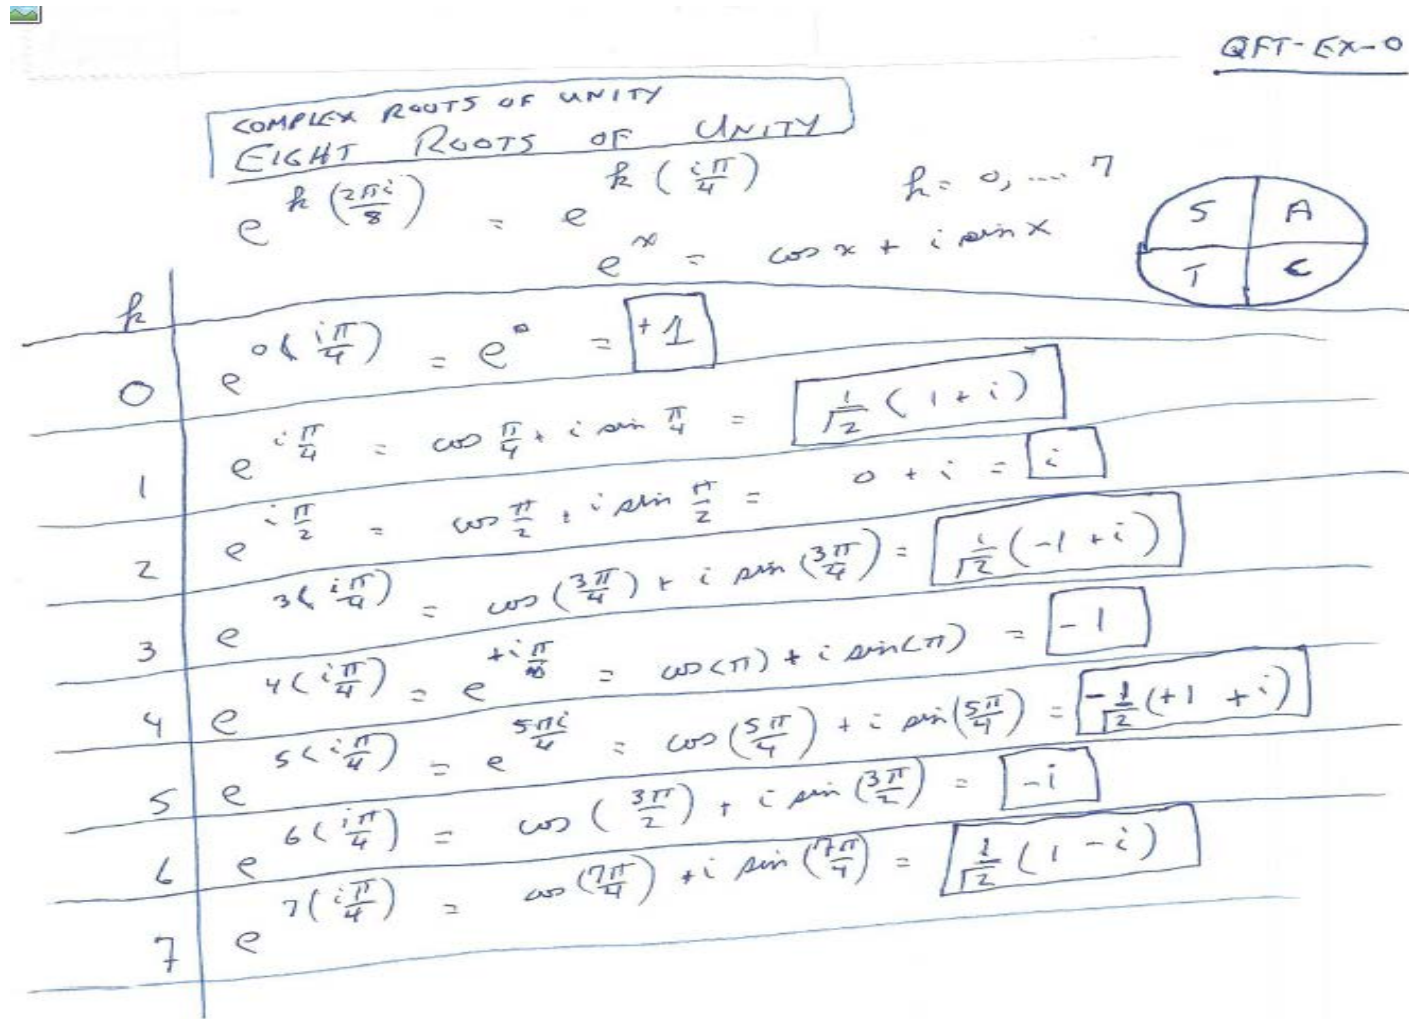 QFT-EX-0
COMPLEX ROOTS OF UNITY
EIGHT ROOTS OF UNITY
e^{k(2πi/8)} = e^{k(iπ/4)} k = 0, .... 7
e^x = cos x + i sin x
S A
T C
k
0 e^{0(iπ/4)} = e^0 = +1
1 e^{iπ/4} = cos π/4 + i sin π/4 = 1/√2 (1+i)
2 e^{iπ/2} = cos π/2 + i sin π/2 = 0 + i = i
3 e^{3(iπ/4)} = cos (3π/4) + i sin (3π/4) = 1/√2 (-1+i)
4 e^{4(iπ/4)} = e^{+iπ} = cos(π) + i sin(π) = -1
5 e^{5(iπ/4)} = e^{5πi/4} = cos (5π/4) + i sin (5π/4) = -1/√2 (+1 +i)
6 e^{6(iπ/4)} = cos (3π/2) + i sin (3π/2) = -i
7 e^{7(iπ/4)} = cos (7π/4) + i sin (7π/4) = 1/√2 (1-i)